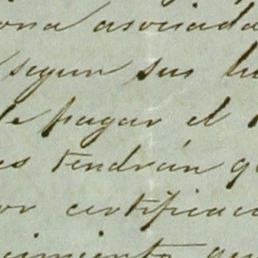 ona asociada
segun sus
de pagar el
es tendrán q
or certificac
cimiento que